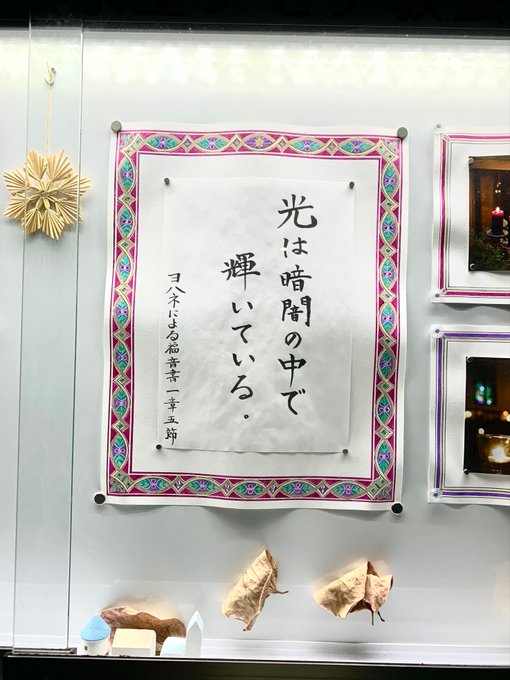 光は暗闇の中で
輝いている.
ヨハネによる福音書一章五節